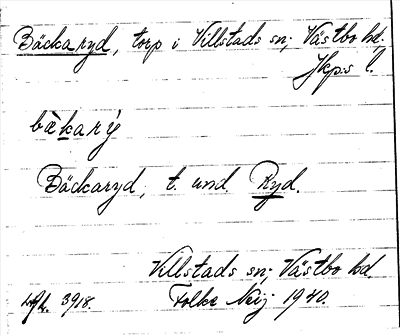 Bäckaryd, torp i Villstads sn; Västbo hd.
Jkps l.
bèkarý
Bäckaryd, t. und. Ryd.
Villstads sn; Västbo hd.
3918. Folke Neij 1940.